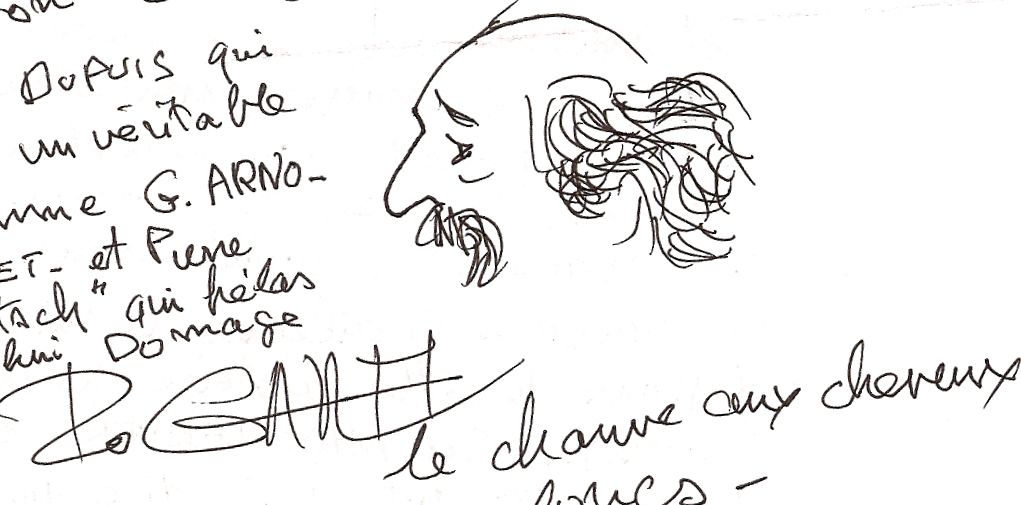 on
DEPUIS qui
un véritable
mme G. ARNO-
ET - et Pierre
tach" qui hélas
hui DOmmage
le chauve aux cheveux
longs -